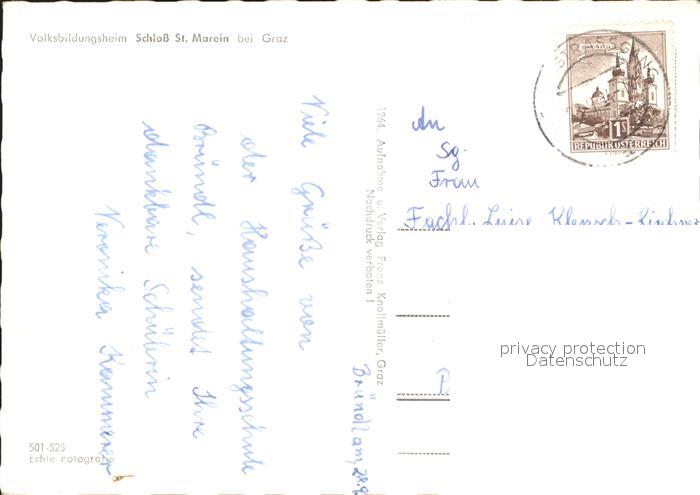 Volksbildungsheim Schloß St. Marein bei Graz
Viele Grüße von
der Haushaltungsschule
Bründl, sendet Ihre
dankbare Schülerin
Veronika Kammerer
501-525
Echte Fotografie
1964. Aufnahme u. Verlag Franz Knollmüller, Graz
Nachdruck verboten !
Bründl am, 28.9.
MARIAZELL
1S
REPUBLIK ÖSTERREICH
An
Sg.
Frau
Fachl. Luise Klensch-Kirchner
privacy protection
Datenschutz